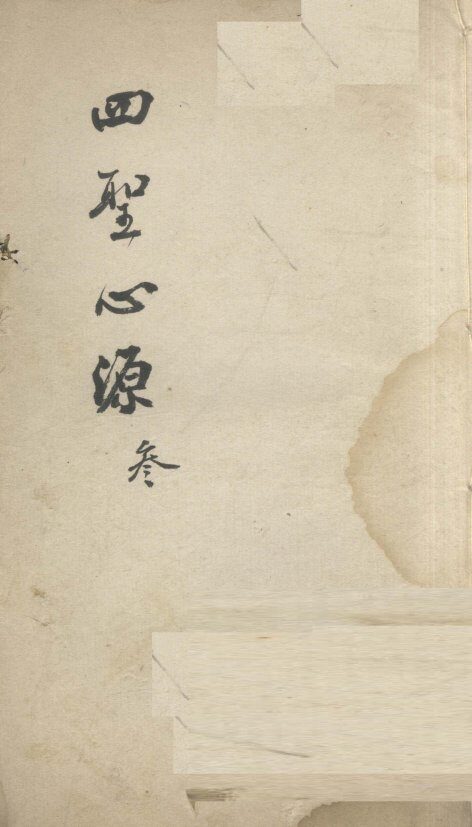 四聖心源 叁